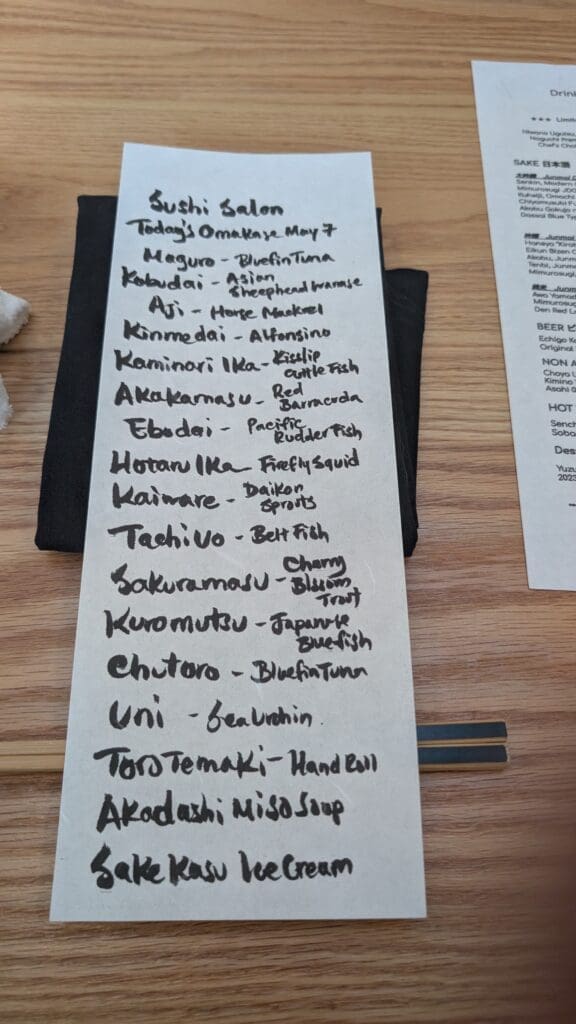 Sushi Salon
Today's Omakase May 7
Maguro - Bluefin Tuna
Kobudai - Asian
Sheephead wrasse
Aji - Horse Mackrel
Kinmedai - Alfonsino
Kaminari Ika - Kisslip
cuttle Fish
Akakamasu - Red
Barracuda
Ebodai - Pacific
Rudder Fish
Hotaru Ika - Firefly Squid
Kaiware - Daikon
Sprouts
Tachiuo - Belt Fish
Sakuramasu - Cherry
Blossom
Trout
Kuromutsu - Japanese
Bluefish
Chutoro - Bluefin Tuna
Uni - Sea Urchin.
Toro Temaki - Hand Roll
Akadashi Miso Soup
Sake Kasu Ice Cream
Drin
*** Limite
Chef's Cho
SAKE 日本酒
大吟醸 Junmai D
Senkin, Modern
Mimurosugi
Omachi
Akabu
Dassai Blue Ty
吟醸 Junmai
Akabu, Junm
Mimurosugi
純米 Junm
Mimurosug
Den Red La
BEER ビ
Echigo Ko
Original
NON A
Choya U
Kimino
Asahi 0
HOT
Sench
Soba
Des
Yuzu
2023